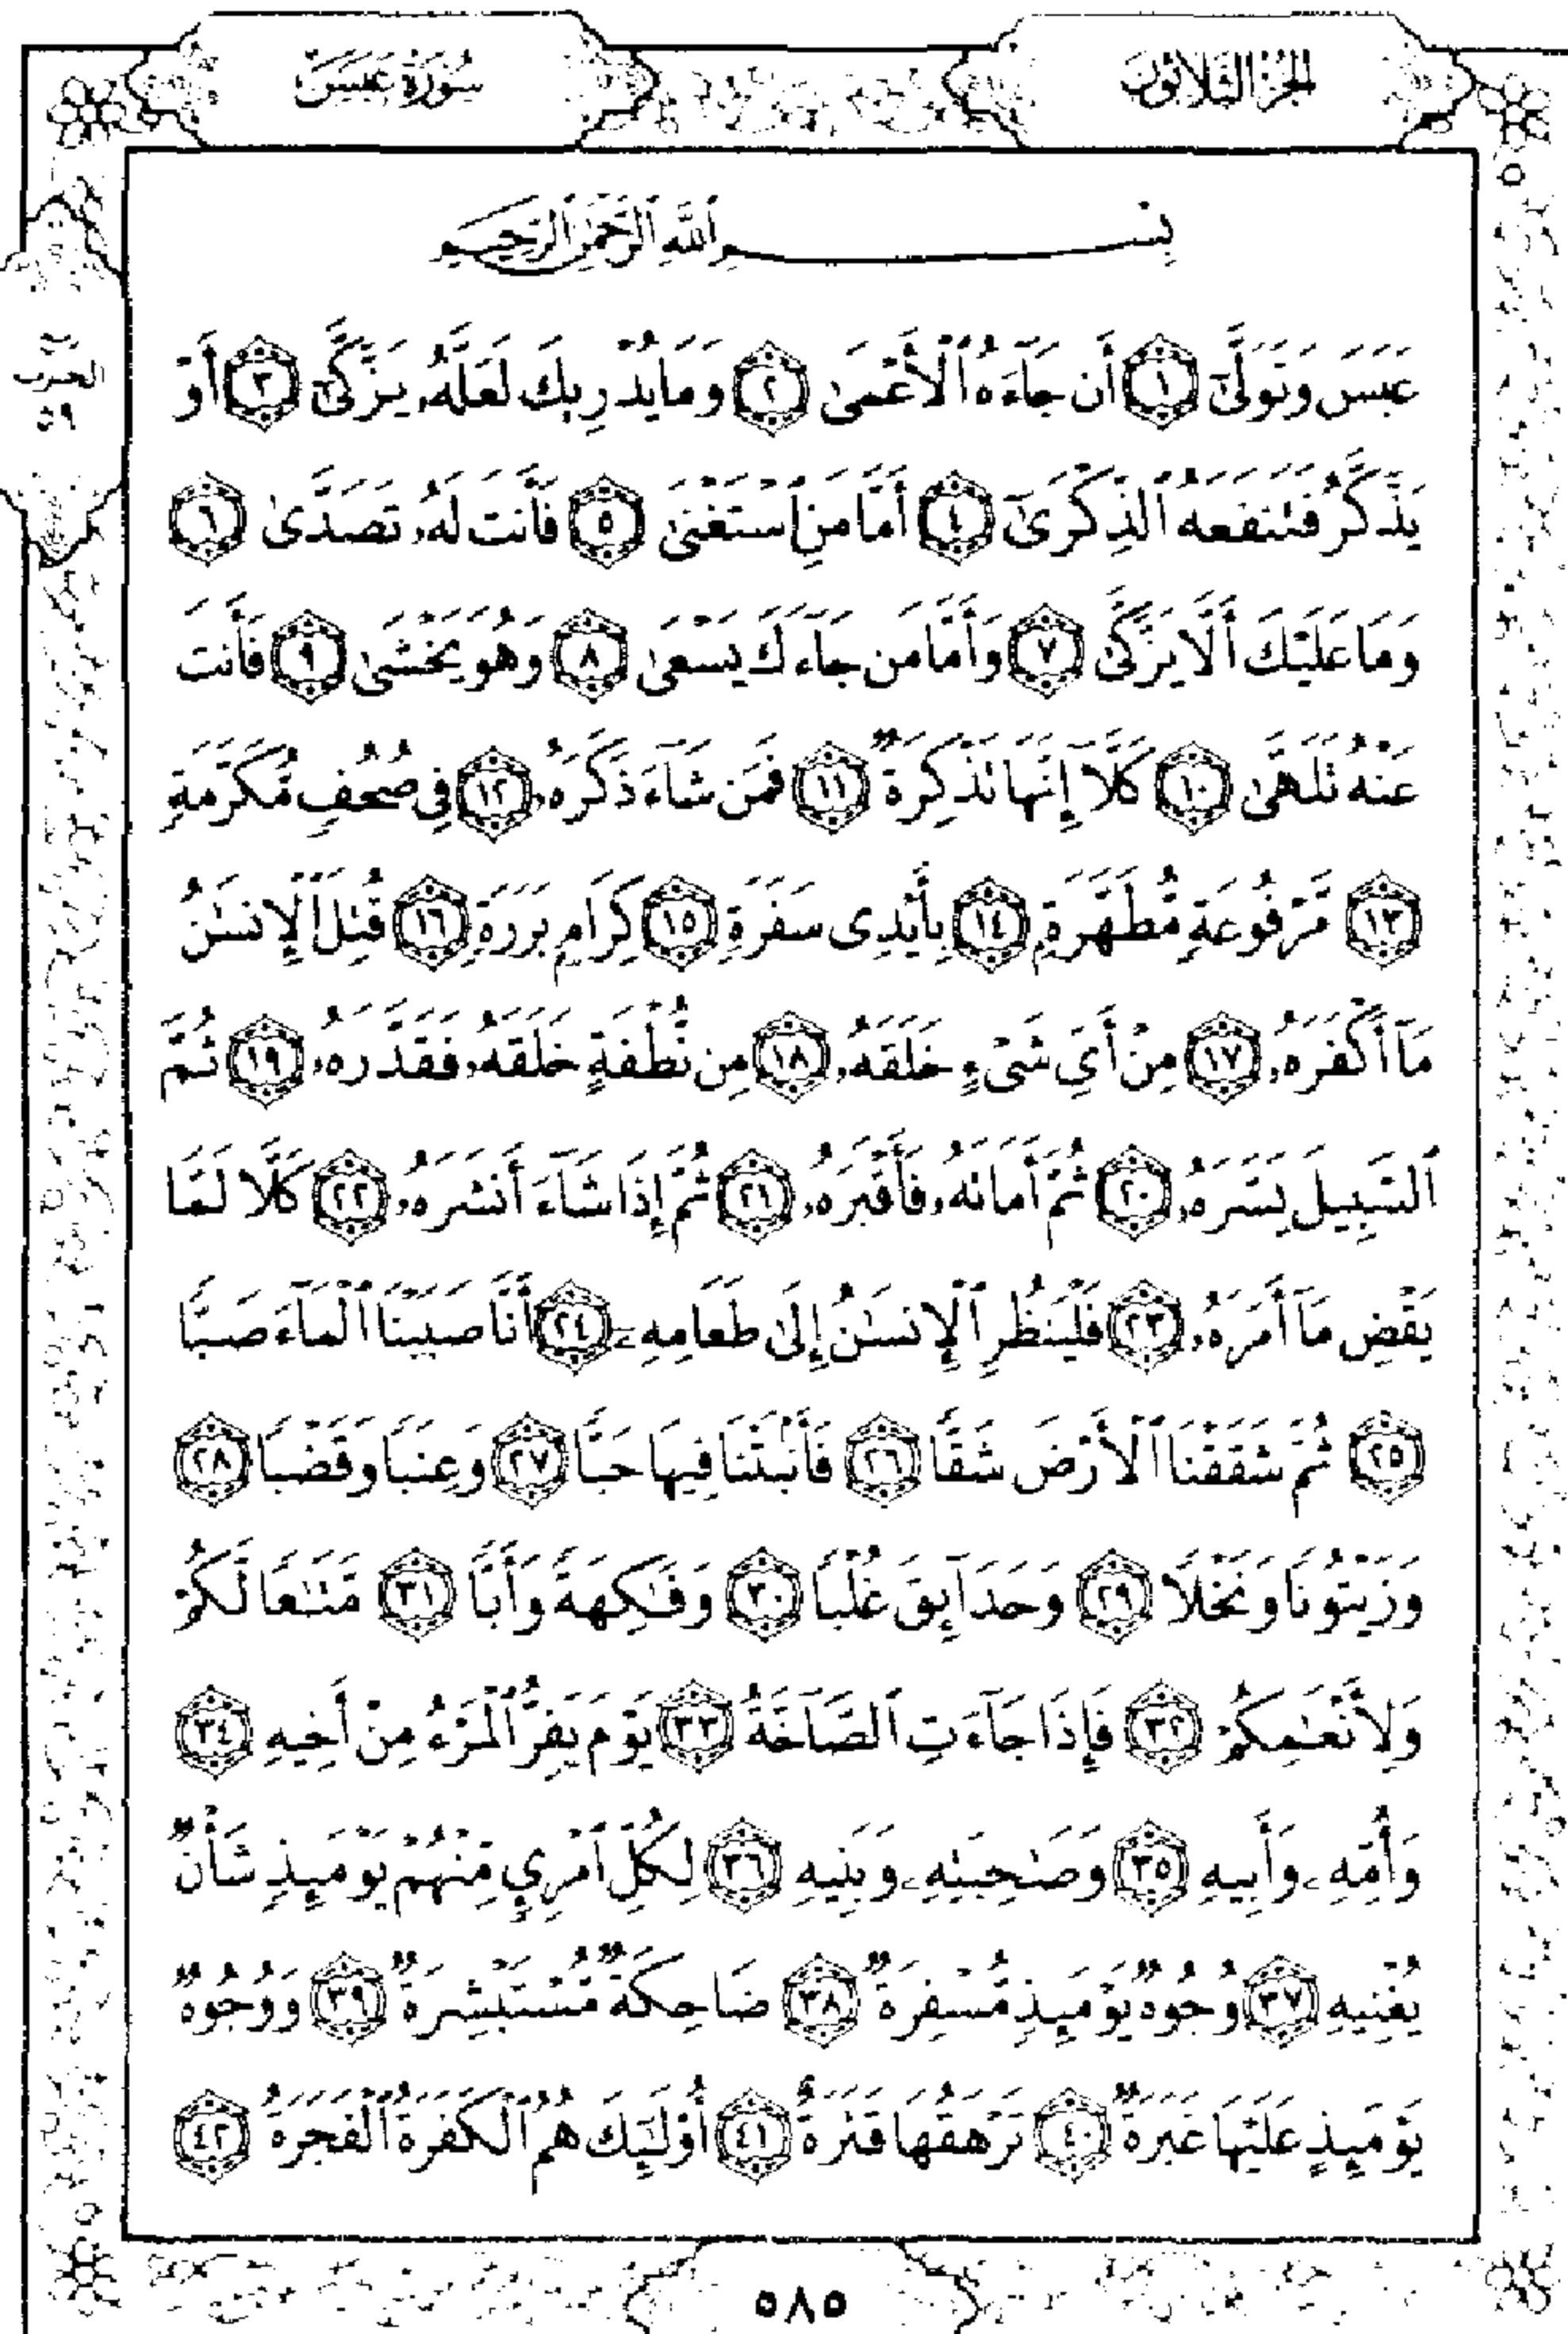 الجُزْءُ الثَّلَاثُونَ
سُورَةُ عَبَسَ
الحزب
٥٩
بِسْمِ ٱللَّهِ ٱلرَّحْمَٰنِ ٱلرَّحِيمِ
عَبَسَ وَتَوَلَّىٰٓ ١ أَن جَآءَهُ ٱلْأَعْمَىٰ ٢ وَمَا يُدْرِيكَ لَعَلَّهُۥ يَزَّكَّىٰٓ ٣ أَوْ
يَذَّكَّرُ فَتَنفَعَهُ ٱلذِّكْرَىٰٓ ٤ أَمَّا مَنِ ٱسْتَغْنَىٰ ٥ فَأَنتَ لَهُۥ تَصَدَّىٰ ٦
وَمَا عَلَيْكَ أَلَّا يَزَّكَّىٰ ٧ وَأَمَّا مَن جَآءَكَ يَسْعَىٰ ٨ وَهُوَ يَخْشَىٰ ٩ فَأَنتَ
عَنْهُ تَلَهَّىٰ ١٠ كَلَّآ إِنَّهَا تَذْكِرَةٌ ١١ فَمَن شَآءَ ذَكَرَهُۥ ١٢ فِى صُحُفٍ مُّكَرَّمَةٍ
١٣ مَّرْفُوعَةٍ مُّطَهَّرَةٍۭ ١٤ بِأَيْدِى سَفَرَةٍ ١٥ كِرَامٍۭ بَرَرَةٍ ١٦ قُتِلَ ٱلْإِنسَٰنُ
مَآ أَكْفَرَهُۥ ١٧ مِنْ أَىِّ شَىْءٍ خَلَقَهُۥ ١٨ مِن نُّطْفَةٍ خَلَقَهُۥ فَقَدَّرَهُۥ ١٩ ثُمَّ
ٱلسَّبِيلَ يَسَّرَهُۥ ٢٠ ثُمَّ أَمَاتَهُۥ فَأَقْبَرَهُۥ ٢١ ثُمَّ إِذَا شَآءَ أَنشَرَهُۥ ٢٢ كَلَّا لَمَّا
يَقْضِ مَآ أَمَرَهُۥ ٢٣ فَلْيَنظُرِ ٱلْإِنسَٰنُ إِلَىٰ طَعَامِهِۦٓ ٢٤ أَنَّا صَبَبْنَا ٱلْمَآءَ صَبًّا
٢٥ ثُمَّ شَقَقْنَا ٱلْأَرْضَ شَقًّا ٢٦ فَأَنۢبَتْنَا فِيهَا حَبًّا ٢٧ وَعِنَبًا وَقَضْبًا ٢٨
وَزَيْتُونًا وَنَخْلًا ٢٩ وَحَدَآئِقَ غُلْبًا ٣٠ وَفَٰكِهَةً وَأَبًّا ٣١ مَّتَٰعًا لَّكُمْ
وَلِأَنْعَٰمِكُمْ ٣٢ فَإِذَا جَآءَتِ ٱلصَّآخَّةُ ٣٣ يَوْمَ يَفِرُّ ٱلْمَرْءُ مِنْ أَخِيهِ ٣٤
وَأُمِّهِۦ وَأَبِيهِ ٣٥ وَصَٰحِبَتِهِۦ وَبَنِيهِ ٣٦ لِكُلِّ ٱمْرِئٍ مِّنْهُمْ يَوْمَئِذٍ شَأْنٌ
يُغْنِيهِ ٣٧ وُجُوهٌ يَوْمَئِذٍ مُّسْفِرَةٌ ٣٨ ضَاحِكَةٌ مُّسْتَبْشِرَةٌ ٣٩ وَوُجُوهٌ
يَوْمَئِذٍ عَلَيْهَا غَبَرَةٌ ٤٠ تَرْهَقُهَا قَتَرَةٌ ٤١ أُو۟لَٰٓئِكَ هُمُ ٱلْكَفَرَةُ ٱلْفَجَرَةُ ٤٢
٥٨٥